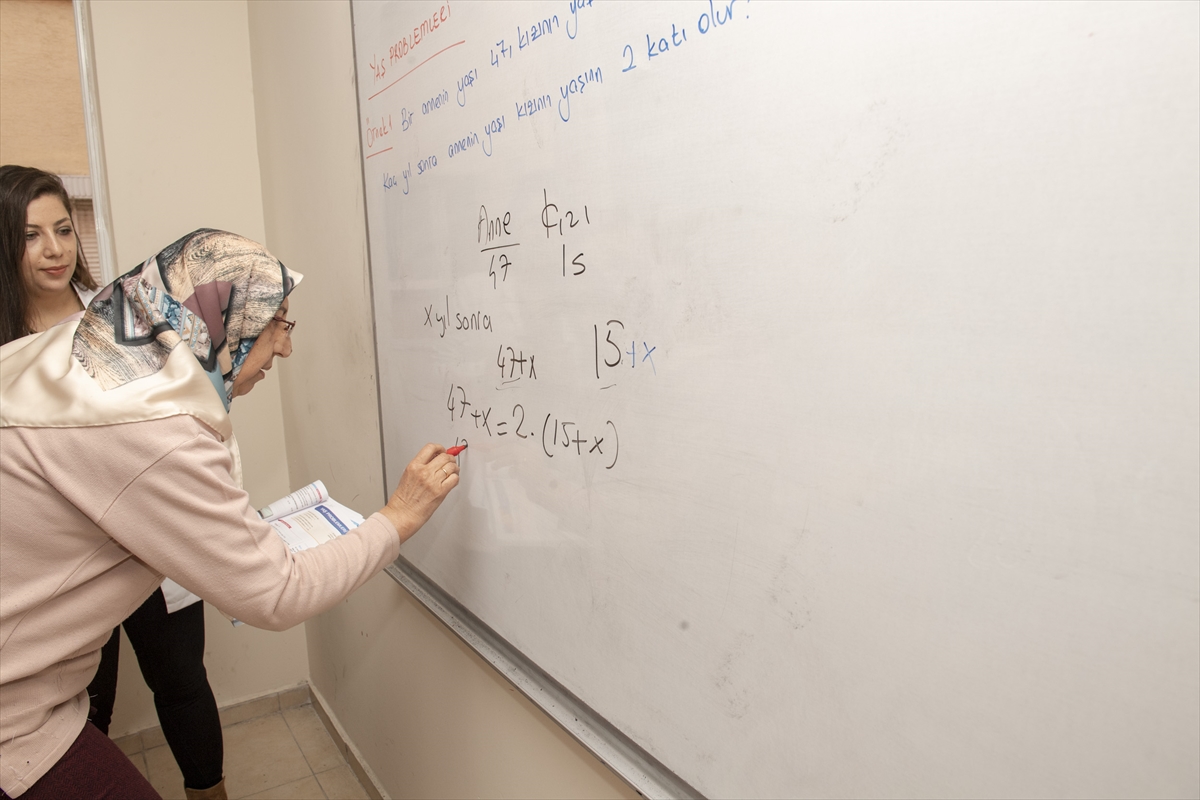 YAŞ PROBLEMLERİ
Örnek1 Bir annenin yaşı 47, kızının
Kaç yıl sonra annenin yaşı kızının yaşının 2 katı olur?
Anne Kızı
47 15
x yıl sonra
47+x 15+x
47+x=2.(15+x)